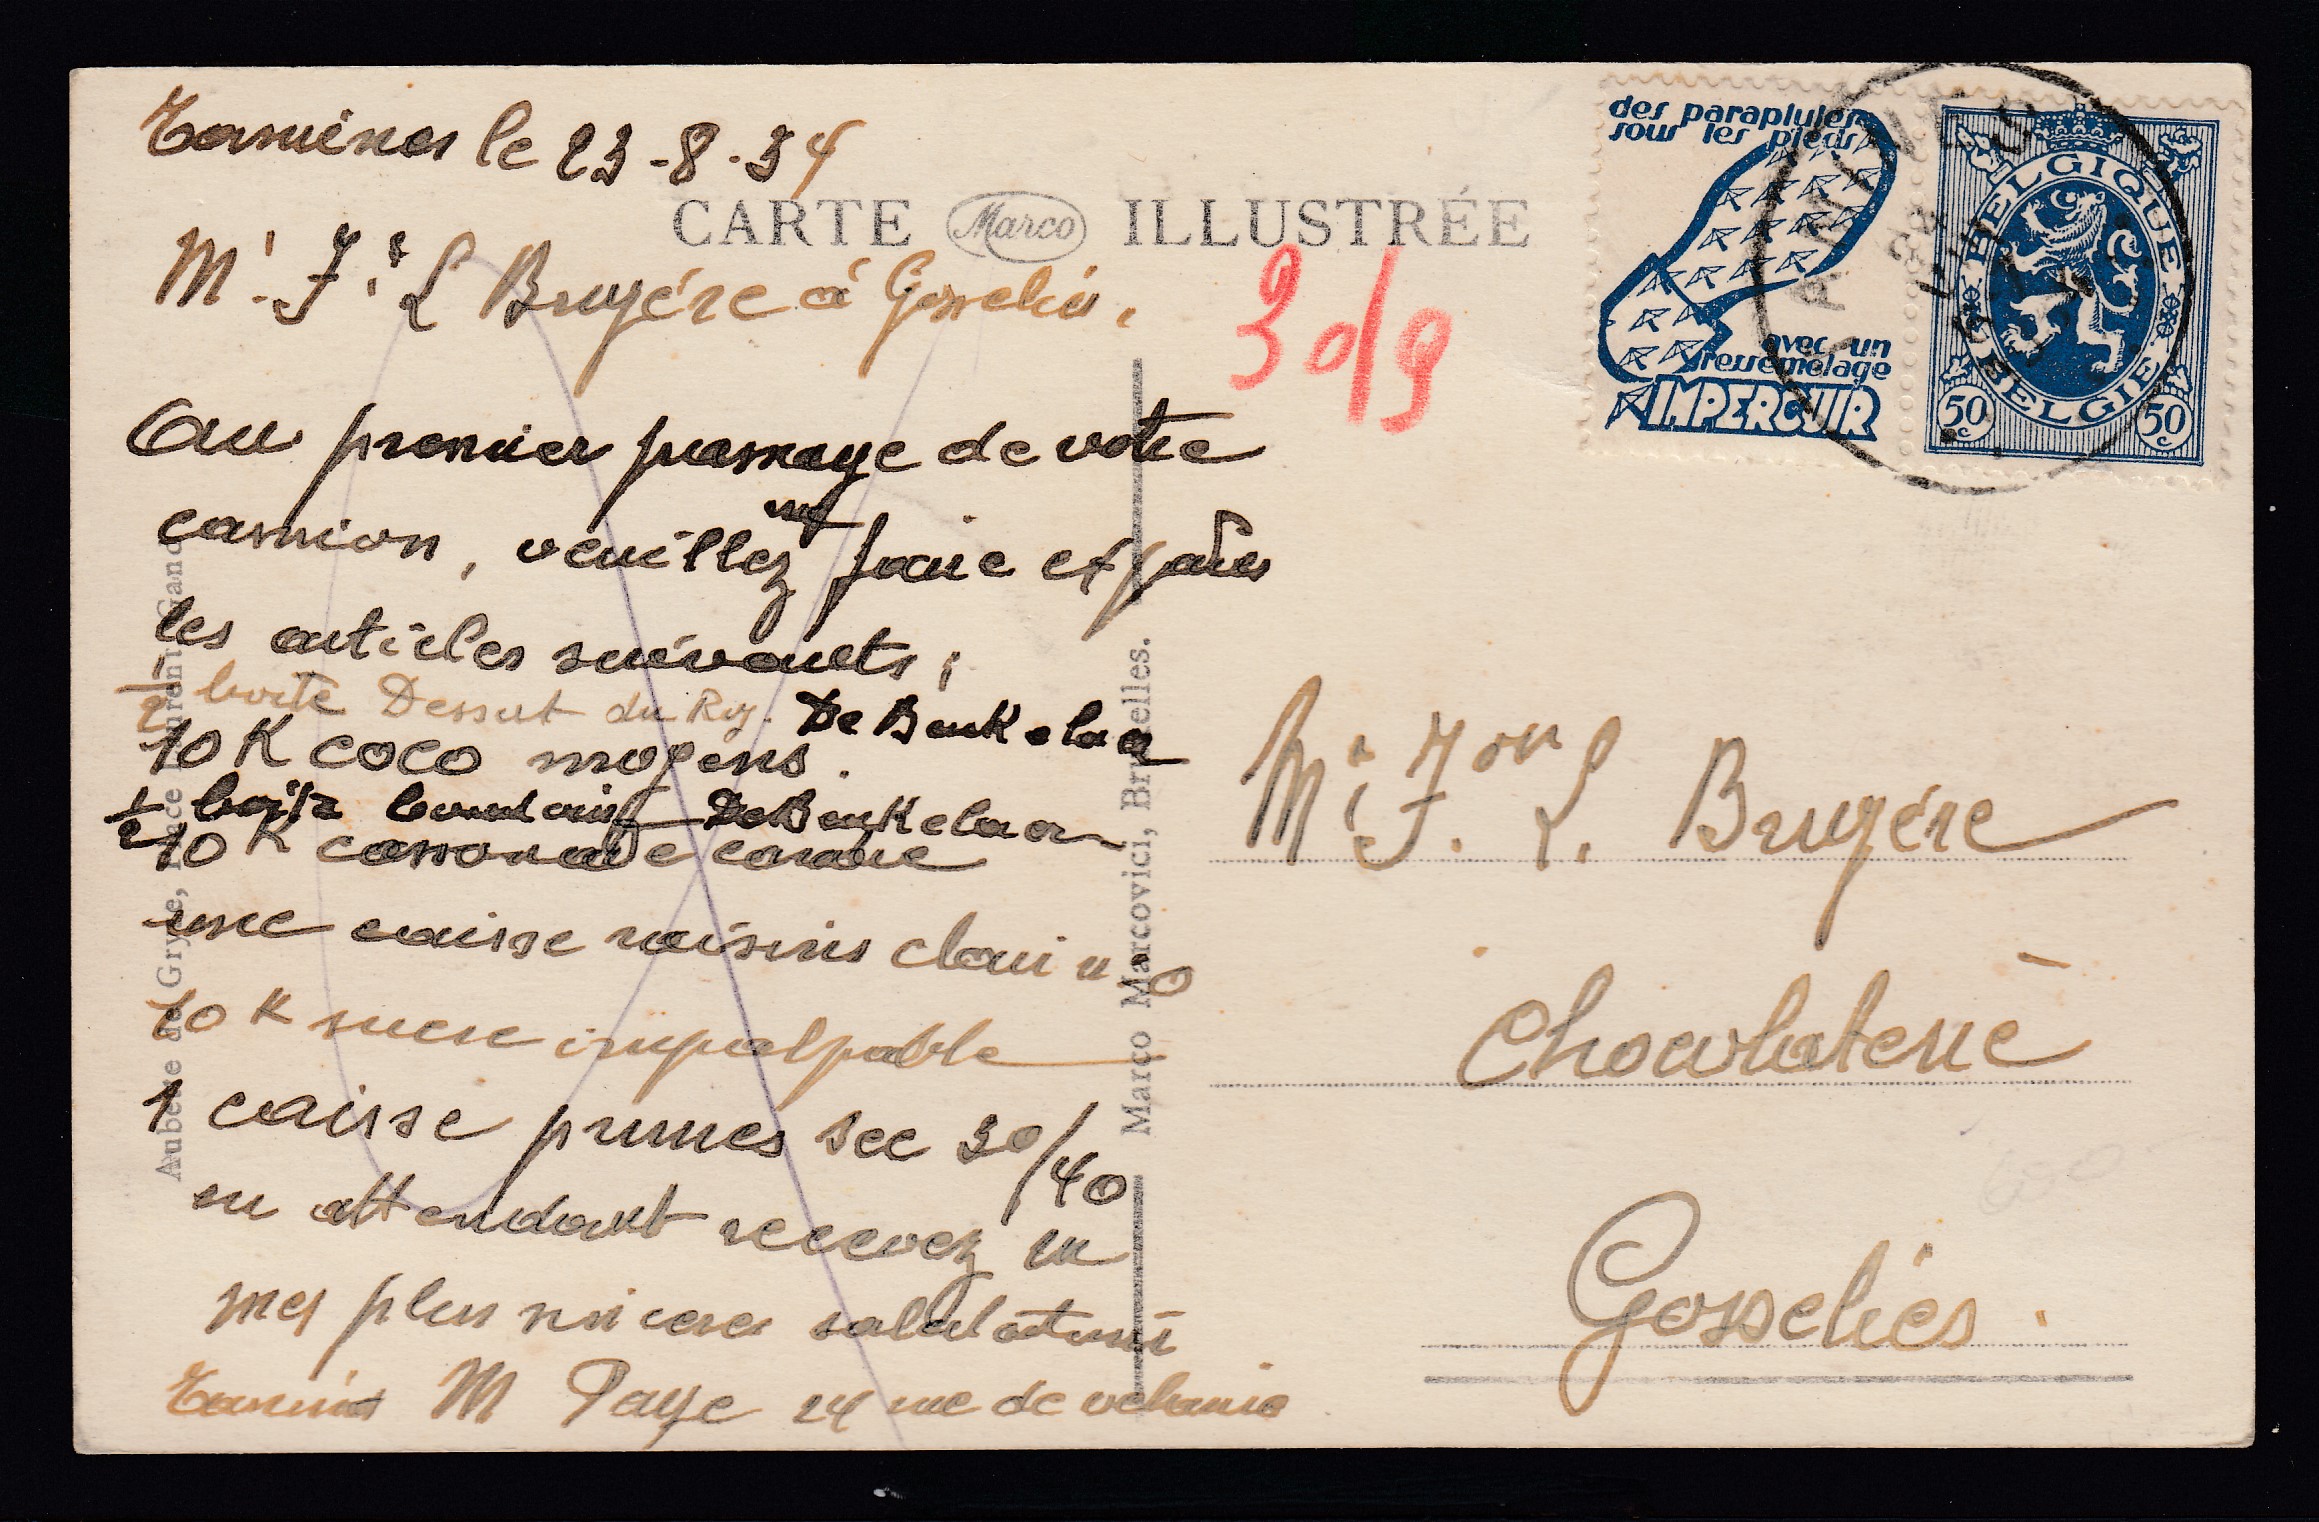 Tamines le 23-8-34
CARTE Marco ILLUSTRÉE
Mr. Fr. L Bruyére á Gosselies.
3 d/9
Au premier passage de votre
camion, veuillez me faire expédier
les articles suivants,
1/2 boite Dessert du Roy. De Beukelaer
10 K coco moyens.
1/2 boite boudoirs De Beukelaer
10 K cassonade candie
une caisse raisins
10 K sucre impalpable
1 caisse prunes sec 30/40
en attendant recevez m
mes plus sinceres salutations
Tamines M Paye 24 rue de
des parapluies
sous les pieds
avec un
ressemelage
IMPERCUIR
BELGIQUE
BELGIË
50 c
50 c
TAMINES
Mr. Fr. L. Bruyére
Chocolaterie
Gosselies.
Marco Marcovici, Bruxelles.
Auberge de Gryse, Place Laurent, Gand